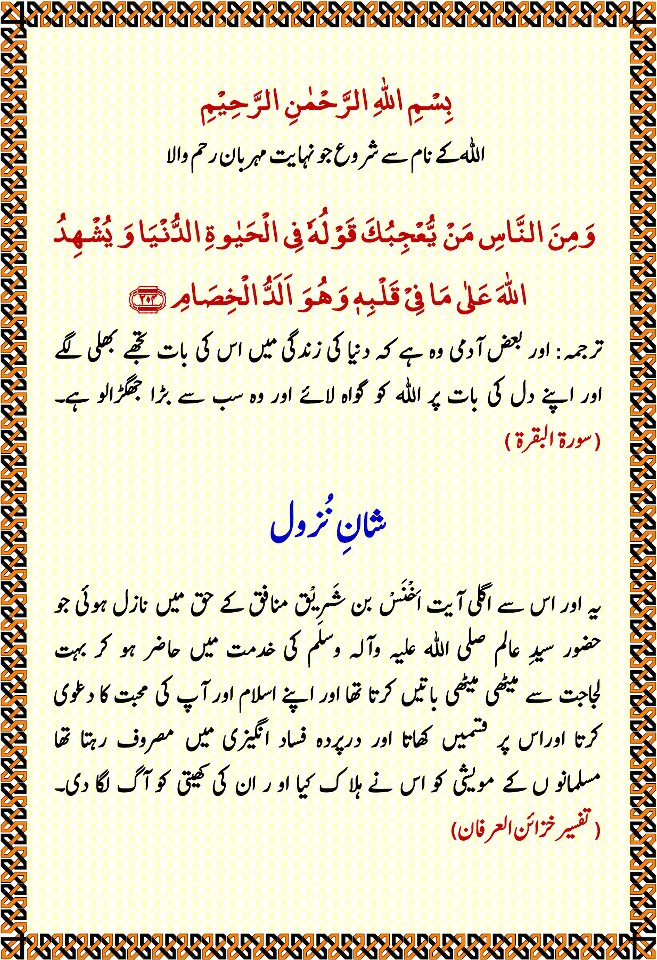 بِسْمِ اللّٰهِ الرَّحْمٰنِ الرَّحِيْمِ
اللہ کے نام سے شروع جو نہایت مہربان رحم والا
وَمِنَ النَّاسِ مَنْ يُّعْجِبُكَ قَوْلُهٗ فِي الْحَيٰوةِ الدُّنْيَا وَيُشْهِدُ
اللّٰهَ عَلٰى مَا فِيْ قَلْبِهٖ وَهُوَ اَلَدُّ الْخِصَامِ ﴿۲۰۴﴾
ترجمہ: اور بعض آدمی وہ ہے کہ دنیا کی زندگی میں اس کی بات تجھے بھلی لگے
اور اپنے دل کی بات پر اللہ کو گواہ لائے اور وہ سب سے بڑا جھگڑالو ہے۔
(سورۃ البقرۃ)
شانِ نُزول
یہ اور اس سے اگلی آیت اَخْنَسْ بن شَرِیْق منافق کے حق میں نازل ہوئی جو
حضور سیدِ عالم صلی اللہ علیہ وآلہ وسلّم کی خدمت میں حاضر ہو کر بہت
لجاجت سے میٹھی میٹھی باتیں کرتا تھا اور اپنے اسلام اور آپ کی محبت کا دعوٰی
کرتا اوراس پر قسمیں کھاتا اور درپردہ فساد انگیزی میں مصروف رہتا تھا
مسلمانو ں کے مویشی کو اس نے ہلاک کیا او ر ان کی کھیتی کو آگ لگا دی۔
(تفسیر خزائن العرفان)